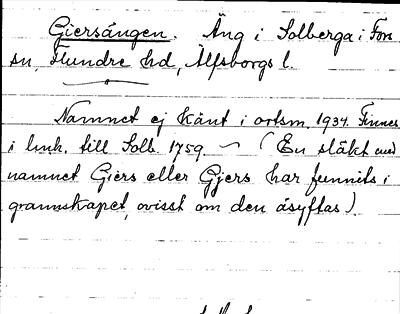 Giersängen. Äng i Solberga i Fors
sn, Flundre hd, Älfsborgs l.
Namnet ej känt i ortsm. 1934. Finnes
i huh. till Solb. 1759. ~ (En släkt med
namnet Giers eller Gjers har funnits i
grannskapet, ovisst om den åsyftas).